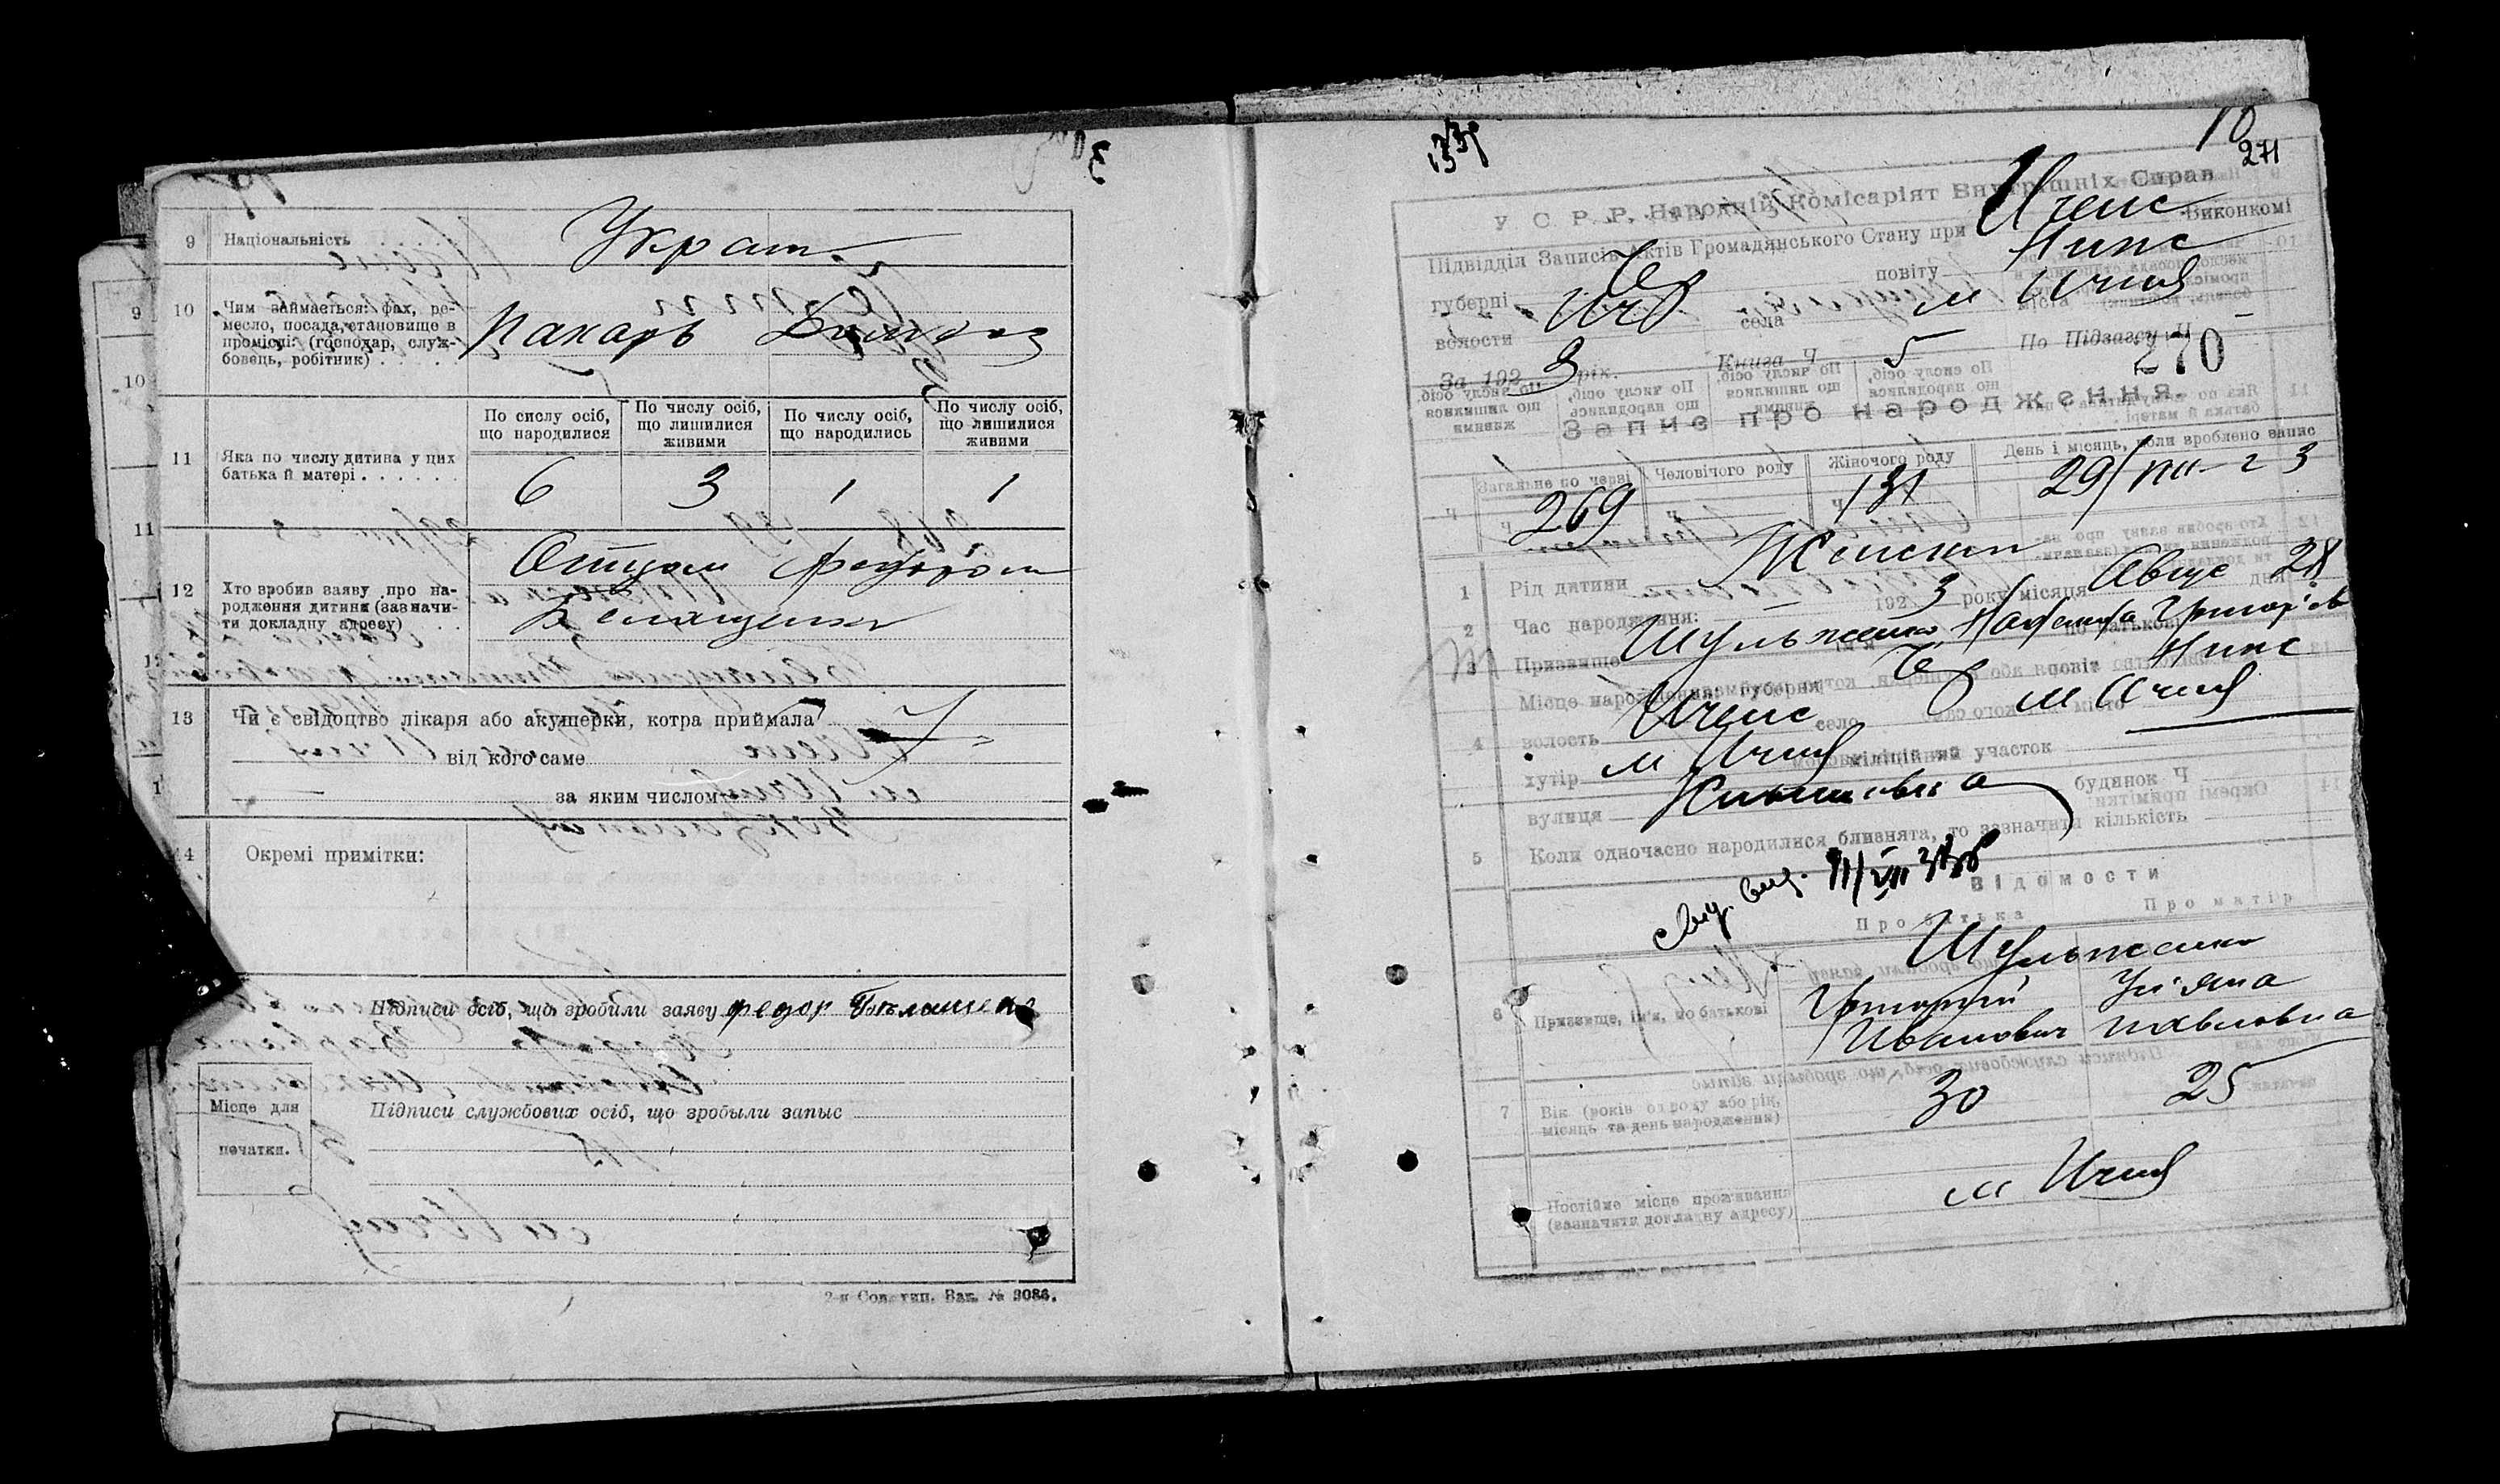 9 Національність . . . . . Украин
10 Чим займається: фах, ре-
месло, посада, становище в
промислі: (господар, служ-
бовець, робітник) . . . . .
Пахарь Домохоз
По сислу осіб,
що народилися
По числу осіб,
що лишилися
живими
По числу осіб,
що народились
По числу осіб,
що лишилися
живими
11 Яка по числу дитина у цих
батька й матері . . . . . .
6 3 1 1
12 Хто вробив заяву про на-
родження дитини (зазначи-
ти докладну адресу) . .
Отцом Федором
Белященко
13 Чи є свідоцтво лікаря або акушерки, котра приймала
від кого саме
за яким числом
14 Окремі примітки:
Підписи осіб, що зробили заяву Федор
Місце для
печатки.
Підписи службових осіб, що зробыли запыс
2-я Сов. тип. Зак. № 3086.
10
271
У. С. Р. Р. Народній Комісаріят Внутрішніх Справ
Підвідділ Записів Актів Громадянського Стану при Ичнс Виконкомі
губерні Чер повіту Нинс
волости Ич села м Ичня міста
За 192 3 рік. Книга Ч 5 По Підзагсу Ч 270
Запис про народження.
Загальне по черві Человічого роду Жіночого роду День і місяць, коли вроблено запис
Ч 269 Ч Ч 131 29/VIII-23
1 Рід дитини Женский
2 Час народження: 192 3 року місяця Авгус дня 28
3 Призвище Шульженко ім'я по батькові
4 Місце народження: губерня Чер повіт Нинс
волость Ичнс село м Ичня місто
хутір м Ичня міліційний участок
вулиця будинок Ч
5 Коли одночасно народилися близнята, то зазначити кількість
ВІДОМОСТИ
Про батька Про матір
6 Призвище, ім'я, по батькові
Шульженко
Григорий
Иванович
Ул'яна
Павловна
7 Вік (років од роду або рік,
місяць та день народження)
30 25
Постійне місце проживання
(зазначити докладну адресу)
м Ичня